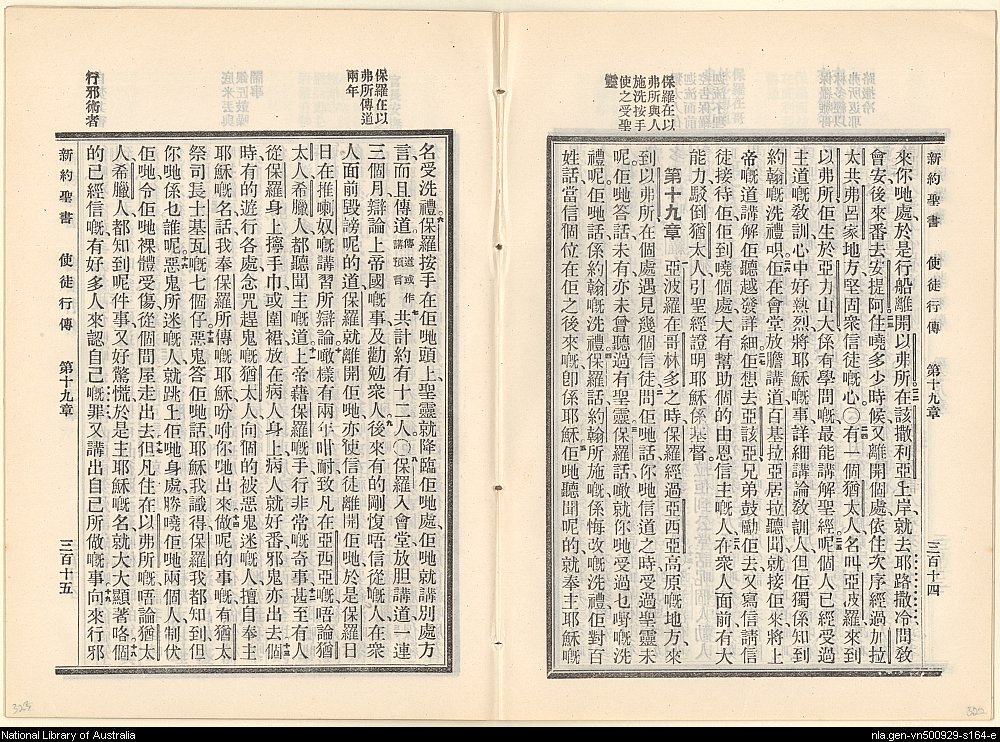 新約聖書 使徒行傳 第十九章 三百十四
來你哋處於是行船離開以弗所在該撒利亞上岸就去耶路撒冷問敎
會安後來番去安提阿住嘵多少時候又離開個處依住次序經過加拉
太共弗呂家地方堅固衆信徒嘅心〇有一個猶太人名叫亞波羅來到
以弗所佢生於亞力山大係有學問嘅最能講解聖經呢個人已經受過
主道嘅敎訓心中好熱烈將耶穌嘅事詳細講論敎訓人但佢獨係知到
約翰嘅洗禮呮佢在會堂放膽講道百基拉亞居拉聽聞就接佢來將上
帝嘅道講解佢聽越發詳細佢想去亞該亞兄弟鼓勵佢去又寫信請信
徒接待佢佢到嘵個處大有幫助個的由恩信主嘅人在衆人面前有大
能力駁倒猶太人引聖經證明耶穌係基督
第十九章 亞波羅在哥林多之時保羅經過亞西亞高原嘅地方來
到以弗所在個處遇見幾個信徒問佢哋話你哋信道之時受過聖靈未
呢佢哋答話未有亦未曾聽過有聖靈保羅話噉就你哋受過乜嘢嘅洗
禮呢佢哋話係約翰嘅洗禮保羅話約翰所施嘅係悔改嘅洗禮佢對百
姓話當信個位在佢之後來嘅卽係耶穌佢哋聽聞呢的就奉主耶穌嘅
保羅在以
弗所與人
施洗按手
使之受聖
靈
名受洗禮保羅按手在佢哋頭上聖靈就降臨佢哋處佢哋就講別處方
言而且傳道傳道或作講預言共計約有十二人〇保羅入會堂放胆講道一連
三個月辯論上帝國嘅事及勸勉衆人後來有的剛愎唔信從嘅人在衆
人面前毀謗呢的道保羅就離開佢哋亦使信徒離開佢哋於是保羅日
日在推喇奴嘅講習所辯論噉樣有兩年咁耐致凡在亞西亞嘅唔論猶
太人希臘人都聽聞主嘅道上帝藉保羅嘅手行非常嘅奇事甚至有人
從保羅身上擰手巾或圍裙放在病人身上病人就好番邪鬼亦出去個
時有的遊行各處念咒趕鬼嘅猶太人向個的被惡鬼迷嘅人擅自奉主
耶穌嘅名話我奉保羅所傳嘅耶穌吩咐你哋出來做呢的事嘅有猶太
祭司長士基瓦嘅七個仔惡鬼答佢哋話耶穌我識得保羅我都知到但
你哋係乜誰呢惡鬼所迷嘅人就跳上佢哋身處勝嘵佢哋兩個人制伏
佢哋令佢哋裸體受傷從個間屋走出去但凡住在以弗所嘅唔論猶太
人希臘人都知到呢件事又好驚慌於是主耶穌嘅名就大大顯著咯個
的已經信嘅有好多人來認自己嘅罪又講出自己所做嘅事向來行邪
新約聖書 使徒行傳 第十九章 三百十五
保羅在以
弗所傳道
兩年
行邪術者
National Library of Australia
nla.gen-vn500929-s164-e